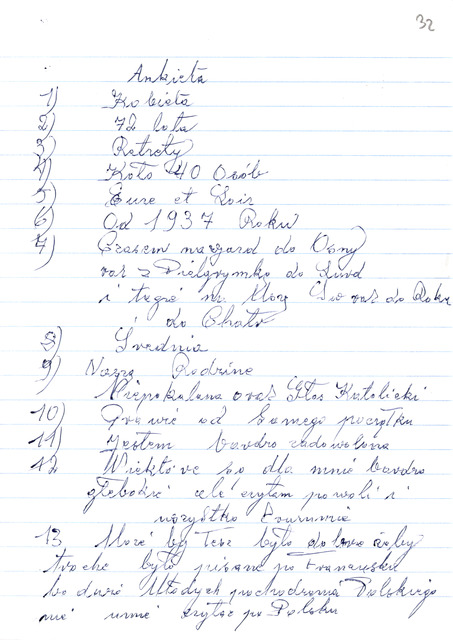 32
Ankieta
1) Kobieta
2) 72 lata
3) Retrety
4) Koło 40 Osób
5) Eure et Loir
6) Od 1937 Roku
7) Czasem wyjazd do Osny
raz z Pielgrzymko do Lurd
i tegié na Mszę raz do Roku
i do Chatr
8) Srednia
9) Naszą Rodzine
Niepokalana oraz Głos Katolicki
10) Prawie od samego początku
11) Jestem bardzo zadowolona
12 Wiektóre so dla mnie bardzo
głebokié alé czytam powoli i
wszystko zrozumié
13 Możé by Tesz było dobrze żeby
troche było pisane po Francusku
bo duzé Młodych pochodzenia Polskiego
nié umié czytać po Polsku